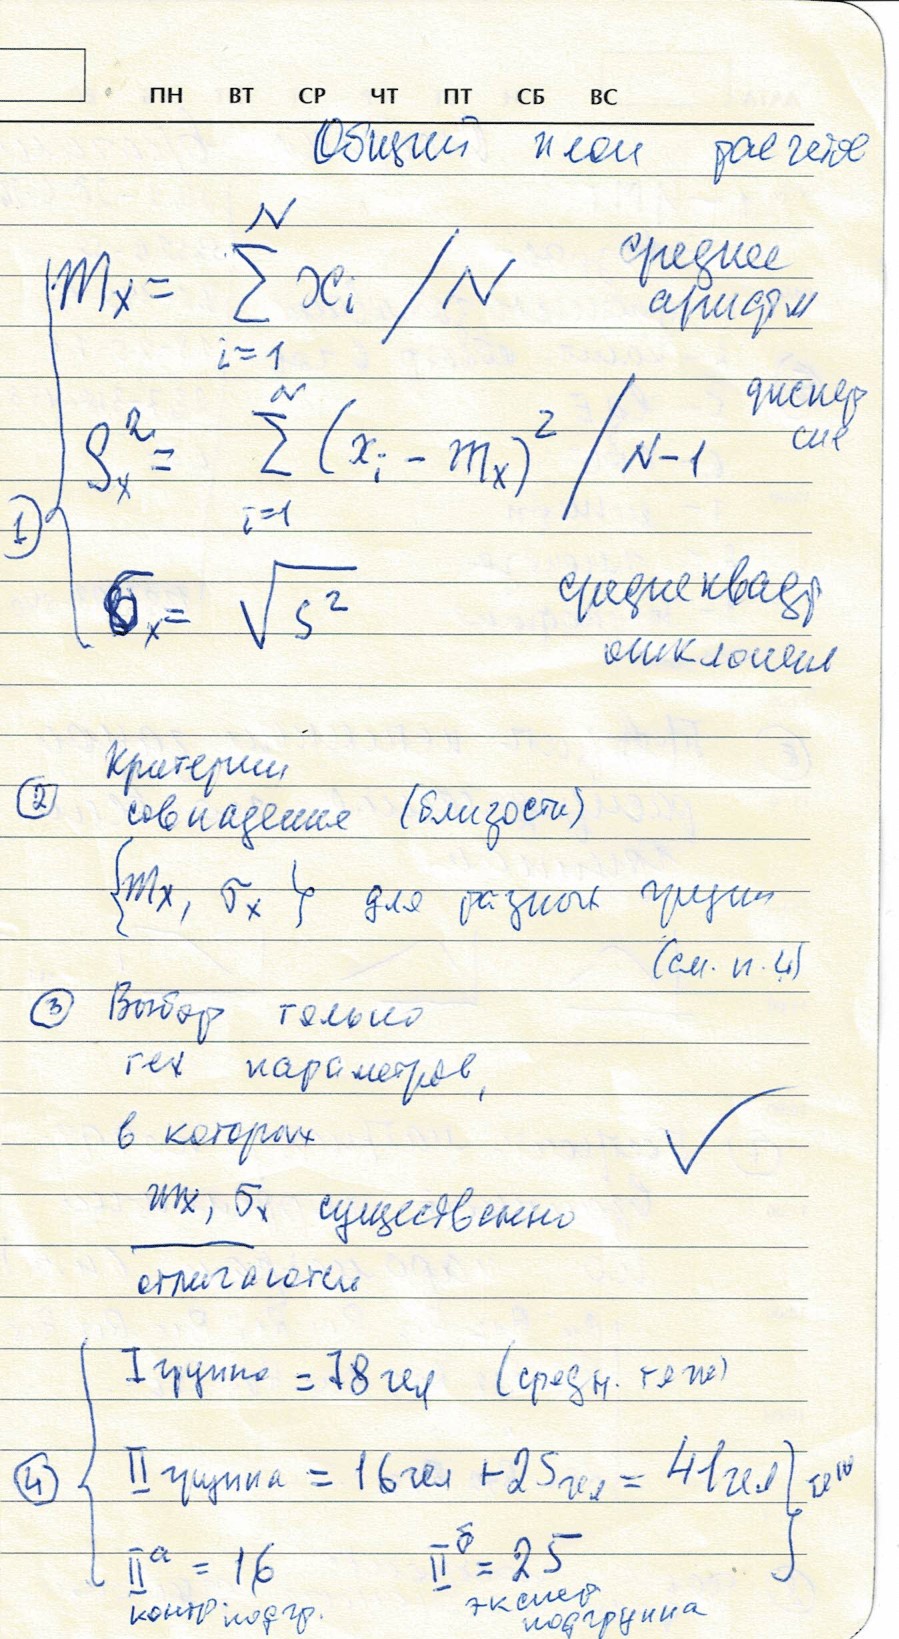 ПН ВТ СР ЧТ ПТ СБ ВС
Общий план расчетов
N
mx = ∑ xi / N среднее
i=1 арифм
N
Sx² = ∑ (xi - mx)² / N-1 дисперсие
i=1
1
σx = √S² среднеквадр
отклонен
2 Критерии
совпадения (близости)
{mx, σx} для разных групп
(см. п. 4)
3 Выбор только
тех параметров,
в которых
mx, σx существенно
отличаются
4
I группа = 78 чел (средн. тяж)
II группа = 16 чел + 25 чел = 41 чел
IIа = 16 IIб = 25
контр. подгр. экспер подгруппа